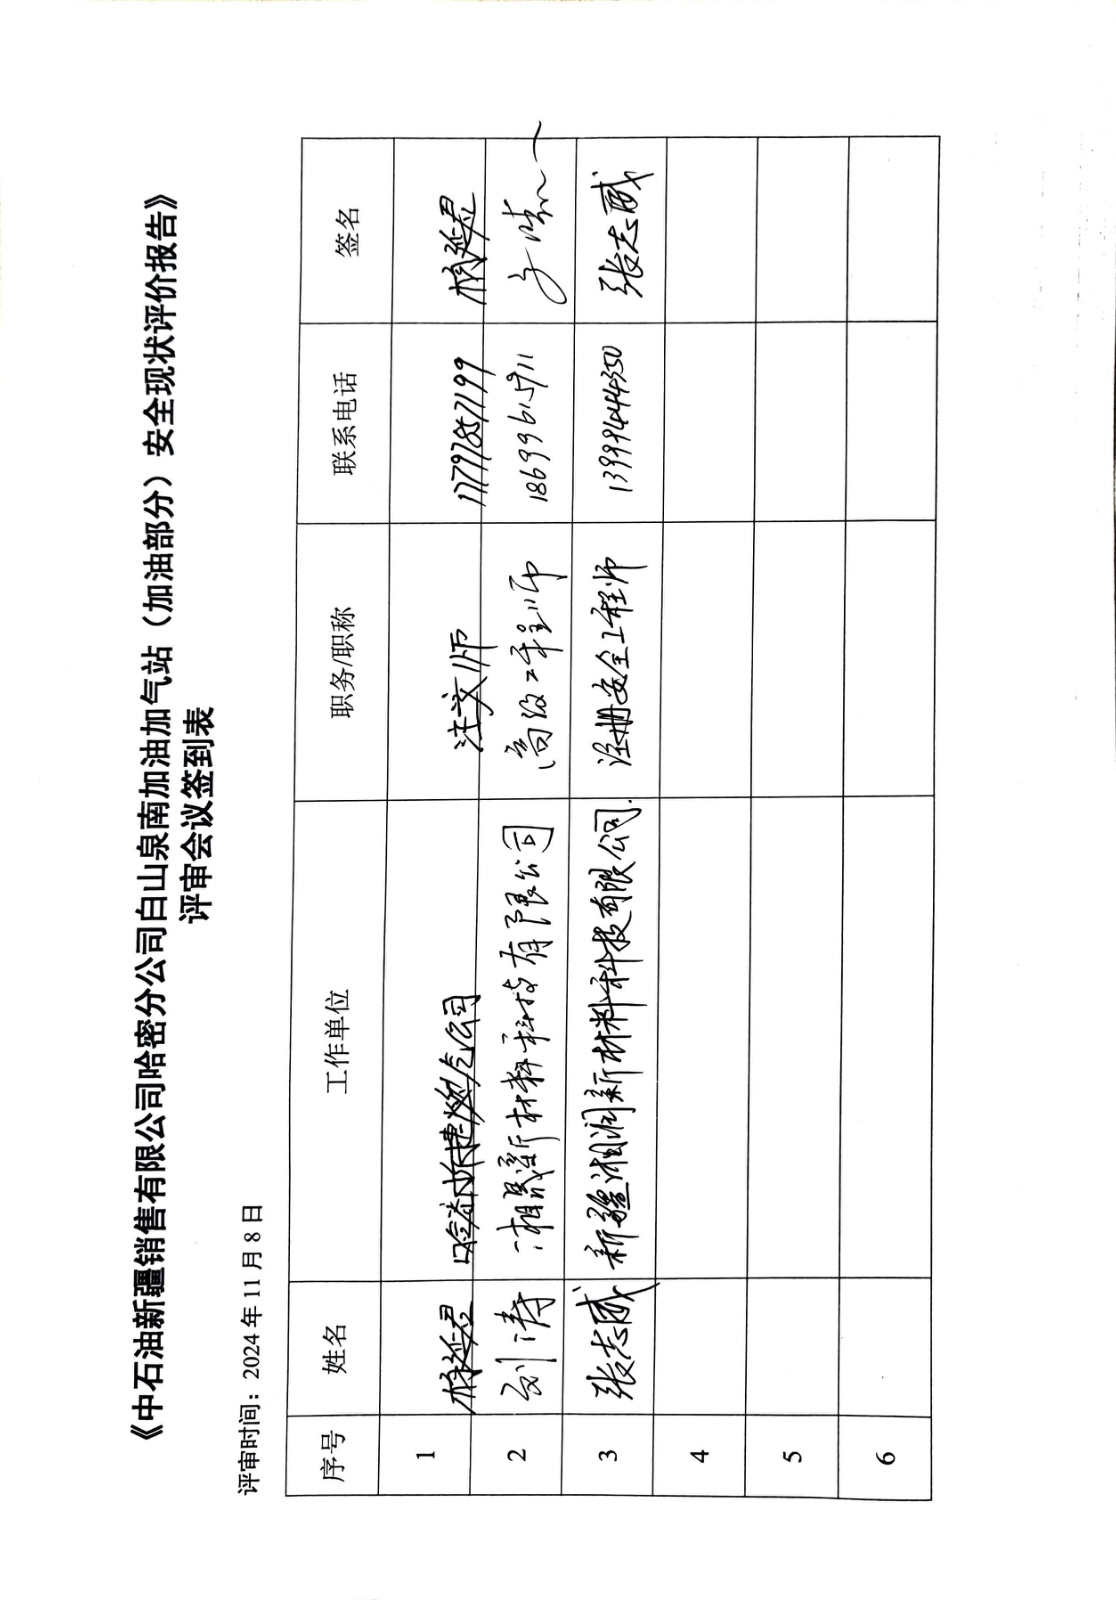 《中石油新疆销售有限公司哈密分公司白山泉南加油加气站（加油部分）安全现状评价报告》
评审会议签到表
评审时间：2024年11月8日
序号 姓名 工作单位 职务/职称 联系电话 签名
1 公司 注安师 17797857199
2 刘涛 新材料科技有限公司 高级工程师 18699615911
3 张志威 新疆湘润新材料科技有限公司 注册安全工程师 13999444350 张志威
4
5
6